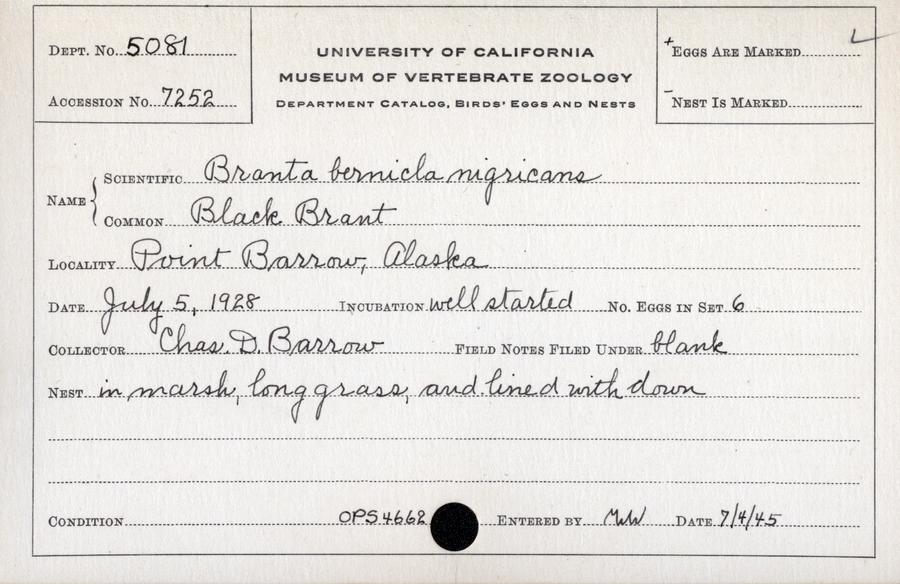 DEPT. No. 5081
ACCESSION No. 7252
UNIVERSITY OF CALIFORNIA
MUSEUM OF VERTEBRATE ZOOLOGY
DEPARTMENT CATALOG, BIRDS' EGGS AND NESTS
+EGGS ARE MARKED
-NEST IS MARKED
NAME
SCIENTIFIC Branta bernicla nigricans
COMMON Black Brant
LOCALITY Point Barrow, Alaska
DATE July 5, 1928 INCUBATION well started No. EGGS IN SET 6
COLLECTOR Chas. D. Barrow FIELD NOTES FILED UNDER blank
NEST in marsh, long grass, and lined with down
CONDITION OPS4662 ENTERED BY DATE 7/4/45